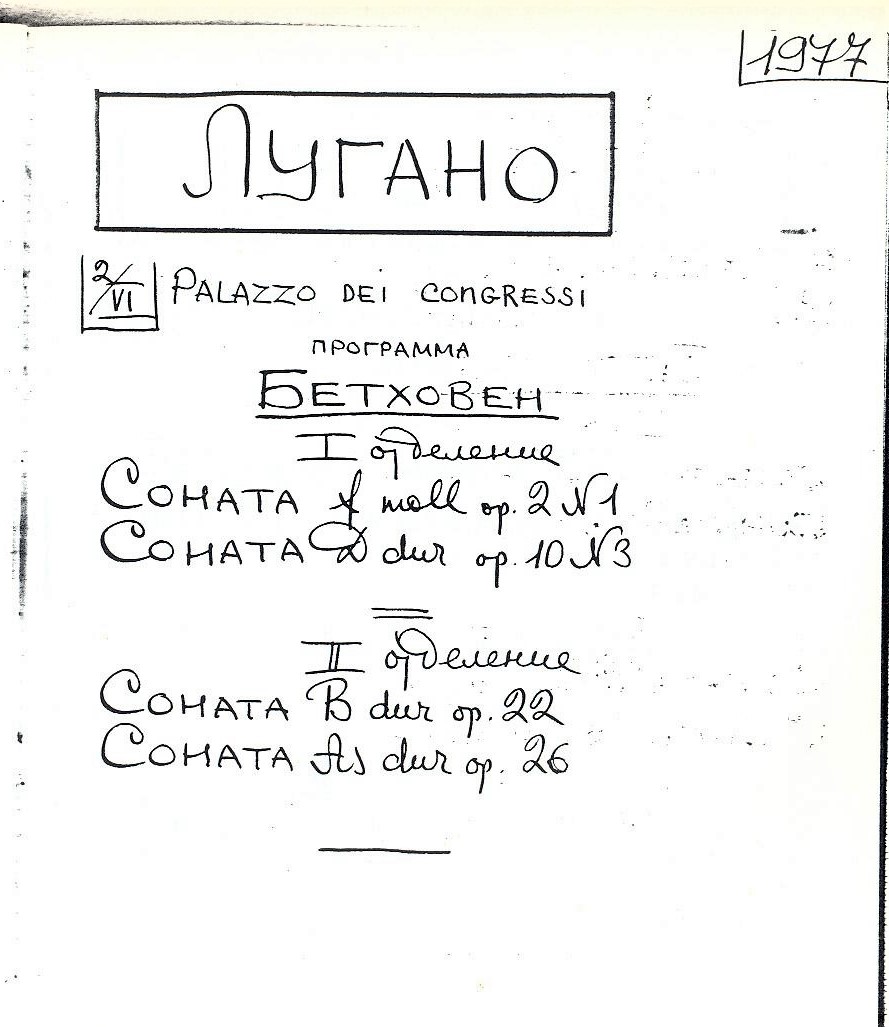 1977
ЛУГАНО
2/VI PALAZZO DEI CONGRESSI
ПРОГРАММА
БЕТХОВЕН
I отделение
СОНАТА f moll op. 2 N1
СОНАТА D dur op. 10 N3
II отделение
СОНАТА B dur op. 22
СОНАТА As dur op. 26